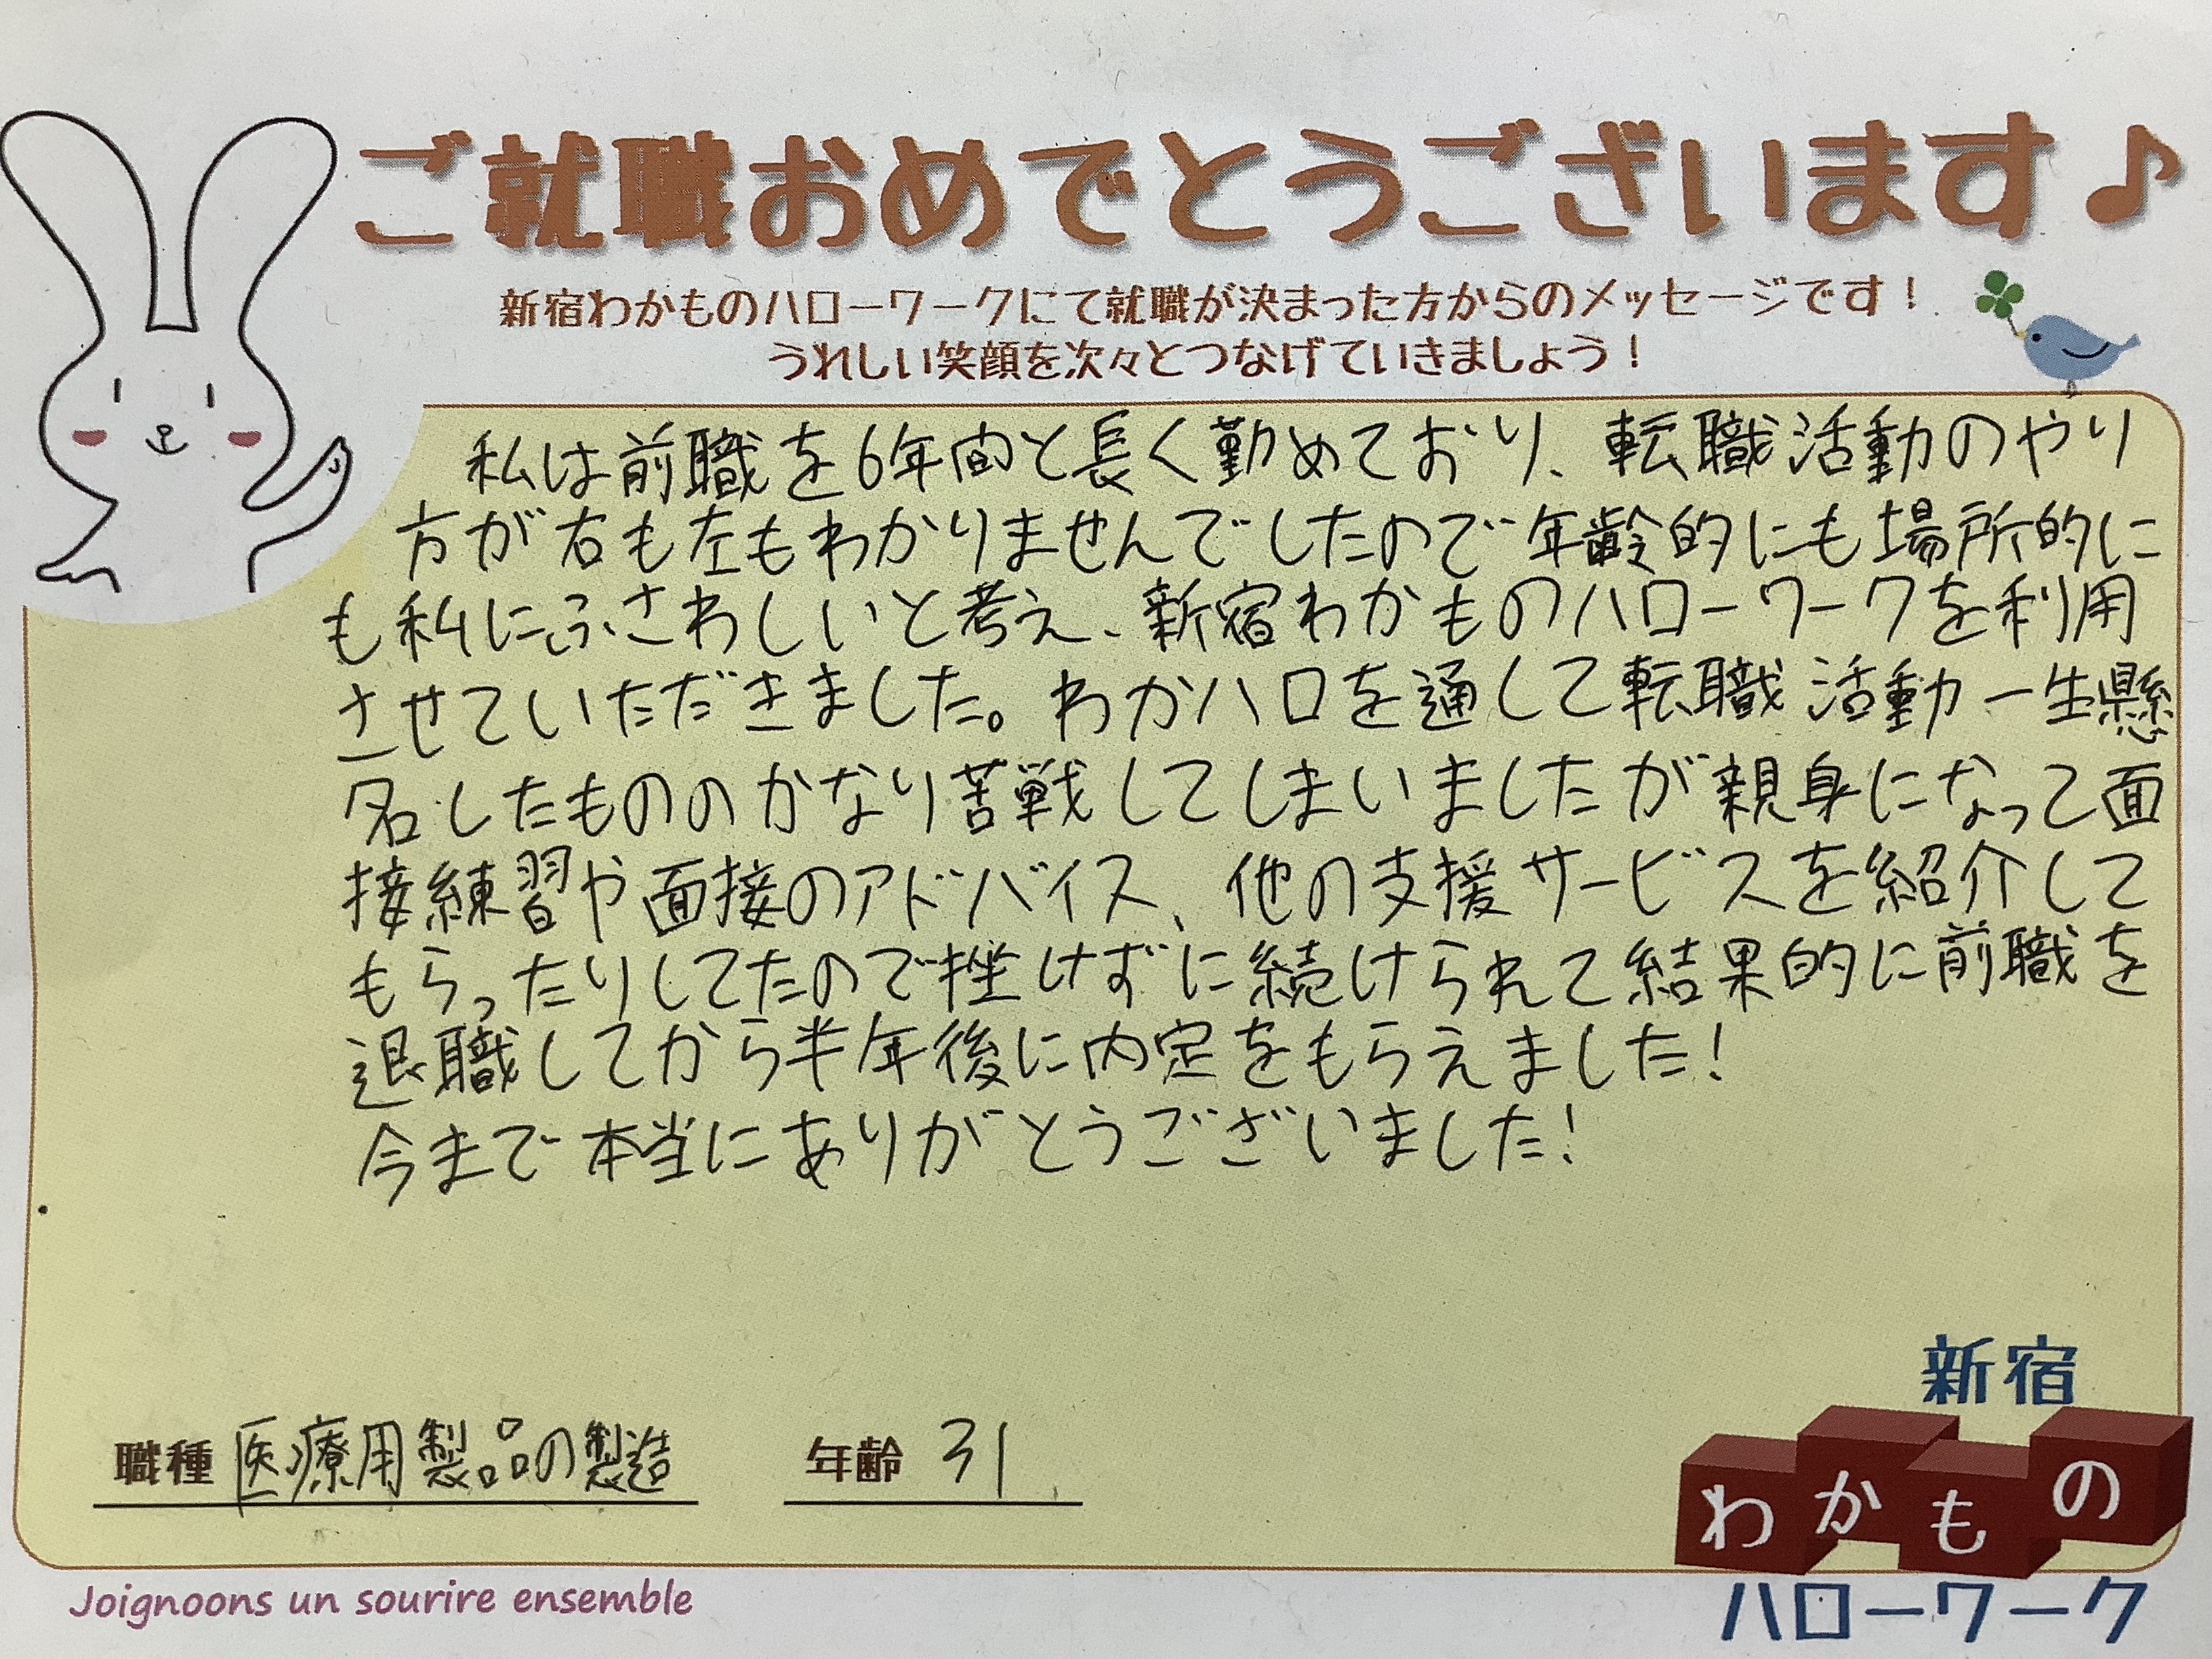 ご就職おめでとうございます♪
新宿わかものハローワークにて就職が決まった方からのメッセージです！
うれしい笑顔を次々とつなげていきましょう！
私は前職を6年間と長く勤めており、転職活動のやり
方が右も左もわかりませんでしたので年齢的にも場所的に
も私にふさわしいと考え、新宿わかものハローワークを利用
させていただきました。わかハロを通して転職活動一生懸
名したもののかなり苦戦してしまいましたが親身になって面
接練習や面接のアドバイス、他の支援サービスを紹介して
もらったりしてたので挫けずに続けられて結果的に前職を
退職してから半年後に内定をもらえました！
今まで本当にありがとうございました！
職種 医療用製品の製造 年齢 31
新宿
わかもの
ハローワーク
Joignoons un sourire ensemble